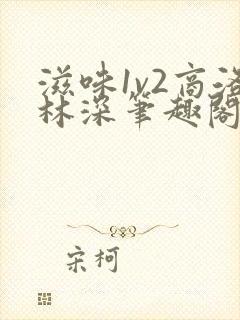 滋味1v2高洛
林深笔趣阁
宋柯